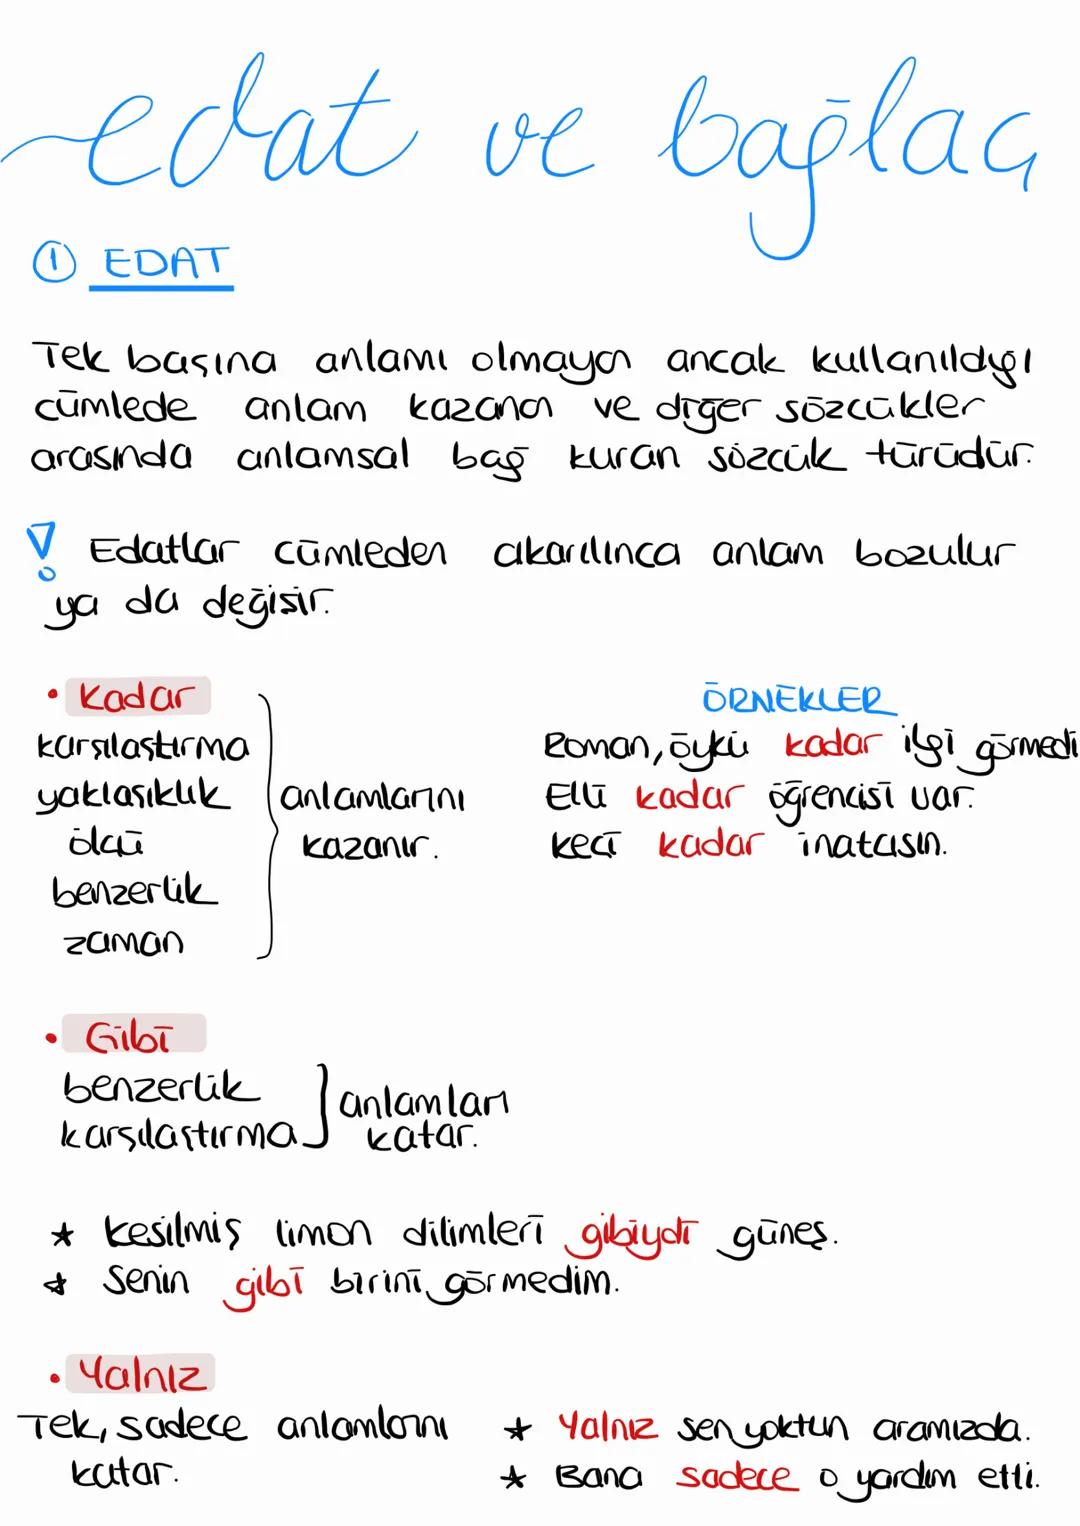 edat ve bağlaç
① EDAT
Tek başına anlamı olmayan ancak kullanıldığı
cümlede anlam kazanan ve diğer sözcükler
arasında anlamsal bağ kuran sözcük türüdür.
! Edatlar cümleden çıkarılınca anlam bozulur
ya da değişir.
• Kadar
karşılaştırma
yaklaşıklık
ölçü
benzerlik
zaman
anlamlarını
kazanır.
ÖRNEKLER
Roman, öykü kadar ilgi görmedi
Elli kadar öğrencisi var.
keçi kadar inatçısın.
• Gibi
benzerlik
karşılaştırma
anlamları
katar.
★ kesilmiş limon dilimleri gibiydi güneş.
★ Senin gibi birini görmedim.
• Yalnız
Tek, sadece anlamlarını
katar.
★ Yalnız sen yoktun aramızda.
★ Bana sadece o yardım etti.